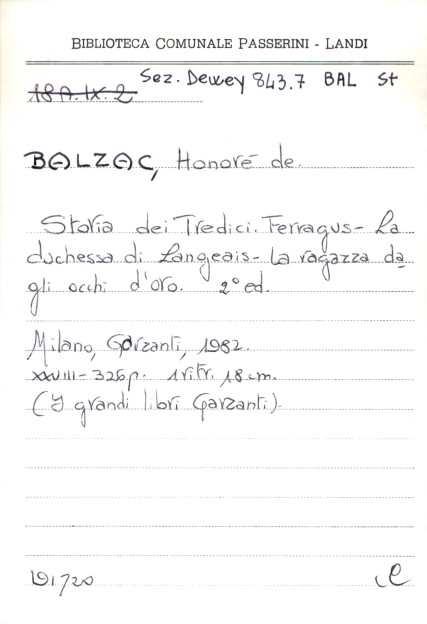 BIBLIOTECA COMUNALE PASSERINI - LANDI
18A.IX.2 Sez. Dewey 843.7 BAL St
BALZAC, Honoré de.
Storia dei Tredici. Ferragus - La
duchessa di Langeais - La ragazza da
gli occhi d'oro. 2° ed.
Milano, Garzanti, 1982.
XXVIII - 326 p. 1 ritr. 18 cm.
(I grandi libri Garzanti).
191720